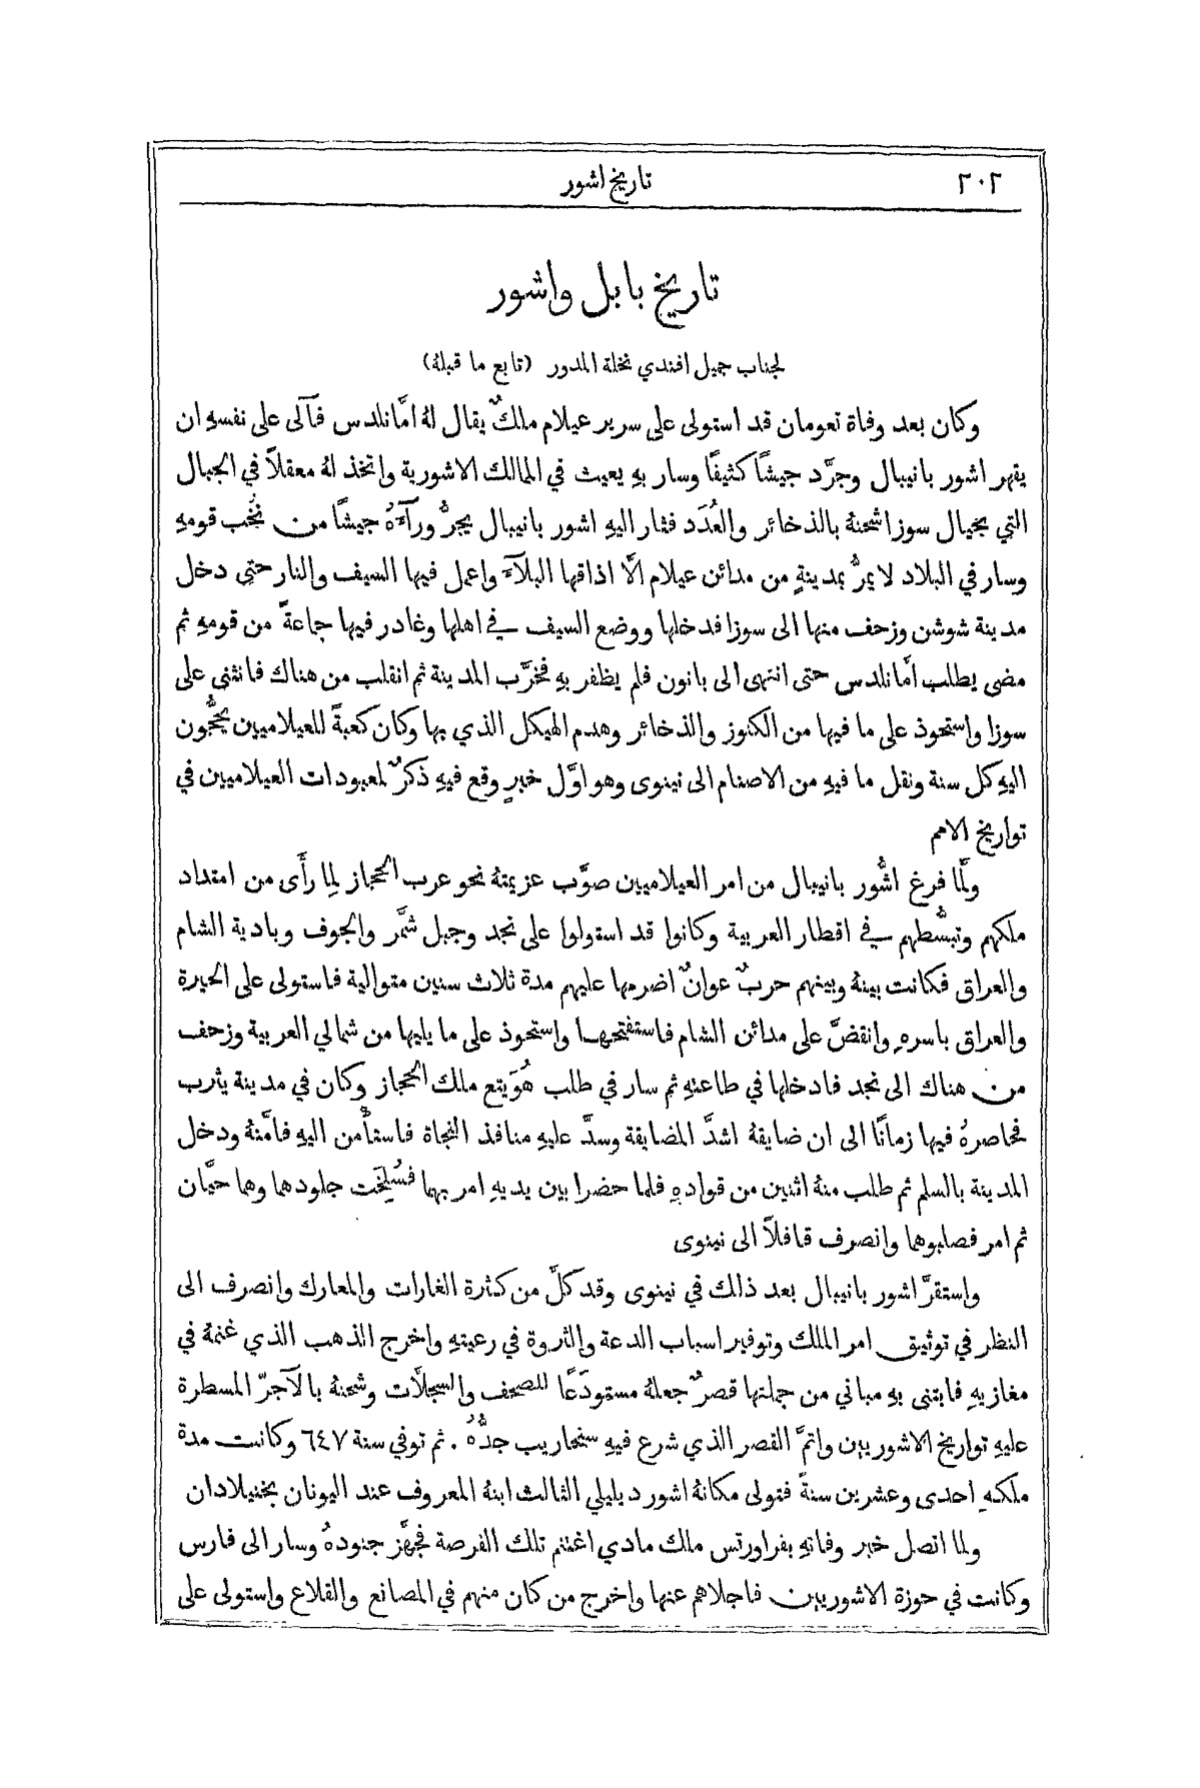 ٢٠٢
تاريخ اشور
تاريخ بابل واشور
لجناب جميل افندي نخلة المدور (تابع ما قبلهُ)
وكان بعد وفاة تعومان قد استولى على سرير عيلام ملكٌ يقال لهُ امَّانلدس فآلى على نفسهِ ان
يقهر اشور بانيبال وجرَّد جيشًا كثيفًا وسار بهِ يعيث في الممالك الاشورية واتخذ لهُ معقلاً في الجبال
التي بحيال سوزا شحنهُ بالذخائر والعُدَد فثار اليهِ اشور بانيبال يجرُّ ورآءَهُ جيشًا من نُخَب قومهِ
وسار في البلاد لا يمرُّ بمدينةٍ من مدائن عيلام الَّا اذاقها البلآءَ واعمل فيها السيف والنار حتى دخل
مدينة شوشن وزحف منها الى سوزا فدخلها ووضع السيف في اهلها وغادر فيها جماعةً من قومهِ ثم
مضى يطلب امَّانلدس حتى انتهى الى بانون فلم يظفر بهِ فخرَّب المدينة ثم انقلب من هناك فانثنى على
سوزا واستحوذ على ما فيها من الكنوز والذخائر وهدم الهيكل الذي بها وكان كعبةً للعيلاميين يحجُّون
اليهِ كل سنة ونقل ما فيهِ من الاصنام الى نينوى وهو اوَّل خبرٍ وقع فيهِ ذكرٌ لمعبودات العيلاميين في
تواريخ الامم
ولمَّا فرغ اشُّور بانيبال من امر العيلاميين صوَّب عزيمتهُ نحو عرب الحجاز لِما رأَى من امتداد
ملكهم وتبسُّطهم في اقطار العربية وكانوا قد استولوا على نجد وجبل شمَّر والجوف وبادية الشام
والعراق فكانت بينهُ وبينهم حربٌ عوانٌ اضرمها عليهم مدة ثلاث سنين متوالية فاستولى على الحيرة
والعراق باسرهِ وانقضَّ على مدائن الشام فاستفتحها واستحوذ على ما يليها من شمالي العربية وزحف
من هناك الى نجد فادخلها في طاعتهِ ثم سار في طلب هُوَيتع ملك الحجاز وكان في مدينة يثرب
فحاصرهُ فيها زمانًا الى ان ضايقهُ اشدَّ المضايقة وسدَّ عليهِ منافذ النجاة فاستأْمن اليهِ فامَّنهُ ودخل
المدينة بالسلم ثم طلب منهُ اثنين من قوادهِ فلما حضرا بين يديهِ امر بهما فسُلِخَت جلودهما وهما حيَّان
ثم امر فصلبوهما وانصرف قافلاً الى نينوى
واستقرَّ اشور بانيبال بعد ذلك في نينوى وقد كلَّ من كثرة الغارات والمعارك وانصرف الى
النظر في توثيق امر الملك وتوفير اسباب الدعة والثروة في رعيتهِ واخرج الذهب الذي غنمهُ في
مغازيهِ فابتنى بهِ مباني من جملتها قصرٌ جعلهُ مستودَعًا للصحف والسجلَّات وشحنهُ بالآجرّ المسطرة
عليهِ تواريخ الاشوريين واتمَّ القصر الذي شرع فيهِ سنحاريب جدُّهُ . ثم توفي سنة ٦٤٧ وكانت مدة
ملكهِ احدى وعشرين سنةً فتولى مكانهُ اشور ديليلي الثالث ابنهُ المعروف عند اليونان بخنيلادان
ولما اتصل خبر وفاتهِ بفراورتس ملك مادي اغتنم تلك الفرصة فجهَّز جنودهُ وسار الى فارس
وكانت في حوزة الاشوريين فاجلاهم عنها واخرج من كان منهم في المصانع والقلاع واستولى على